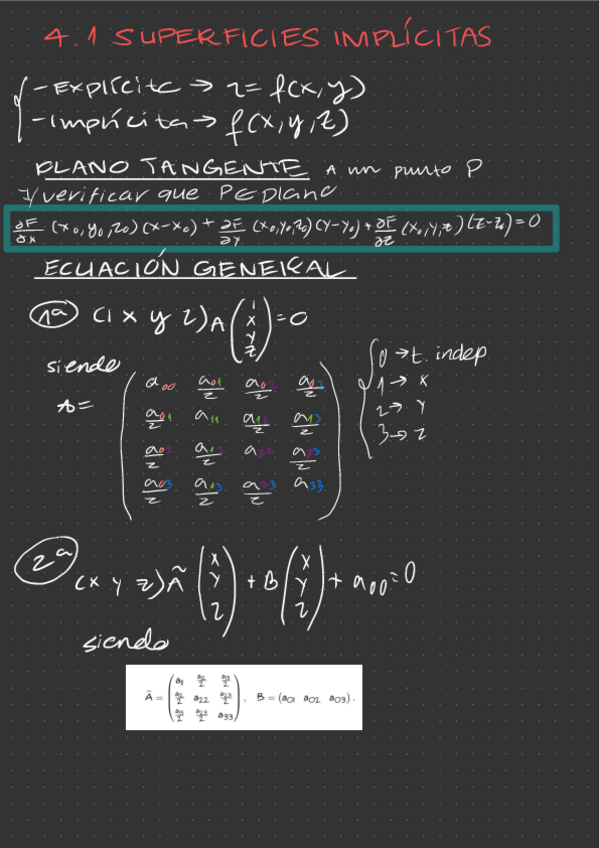 4.1 SUPERFICIES IMPLÍCITAS
- Explícita → z = f(x,y)
- Implícita → f(x,y,z)
PLANO TANGENTE A un punto P
verificar que P∈plano
∂F/∂x (x₀,y₀,z₀)(x-x₀) + ∂F/∂y (x₀,y₀,z₀)(y-y₀) + ∂F/∂z (x₀,y,z)(z-z₀) = 0
ECUACIÓN GENERAL
1ª (1 x y z) A (1 x y z) = 0
siendo
A =
a₀₀ a₀₁/2 a₀₂/2 a₀₃/2
a₀₁/2 a₁₁ a₁₂/2 a₁₃/2
a₀₂/2 a₁₂/2 a₂₂ a₂₃/2
a₀₃/2 a₁₃/2 a₂₃/2 a₃₃
0 → t. indep
1 → x
2 → y
3 → z
2ª (x y z) Ã (x y z) + B (x y z) + a₀₀ = 0
siendo
Ã = (a₁ a₁₂/2 a₁₃/2
a₁₂/2 a₂₂ a₂₃/2
a₁₃/2 a₂₃/2 a₃₃), B = (a₀₁ a₀₂ a₀₃).